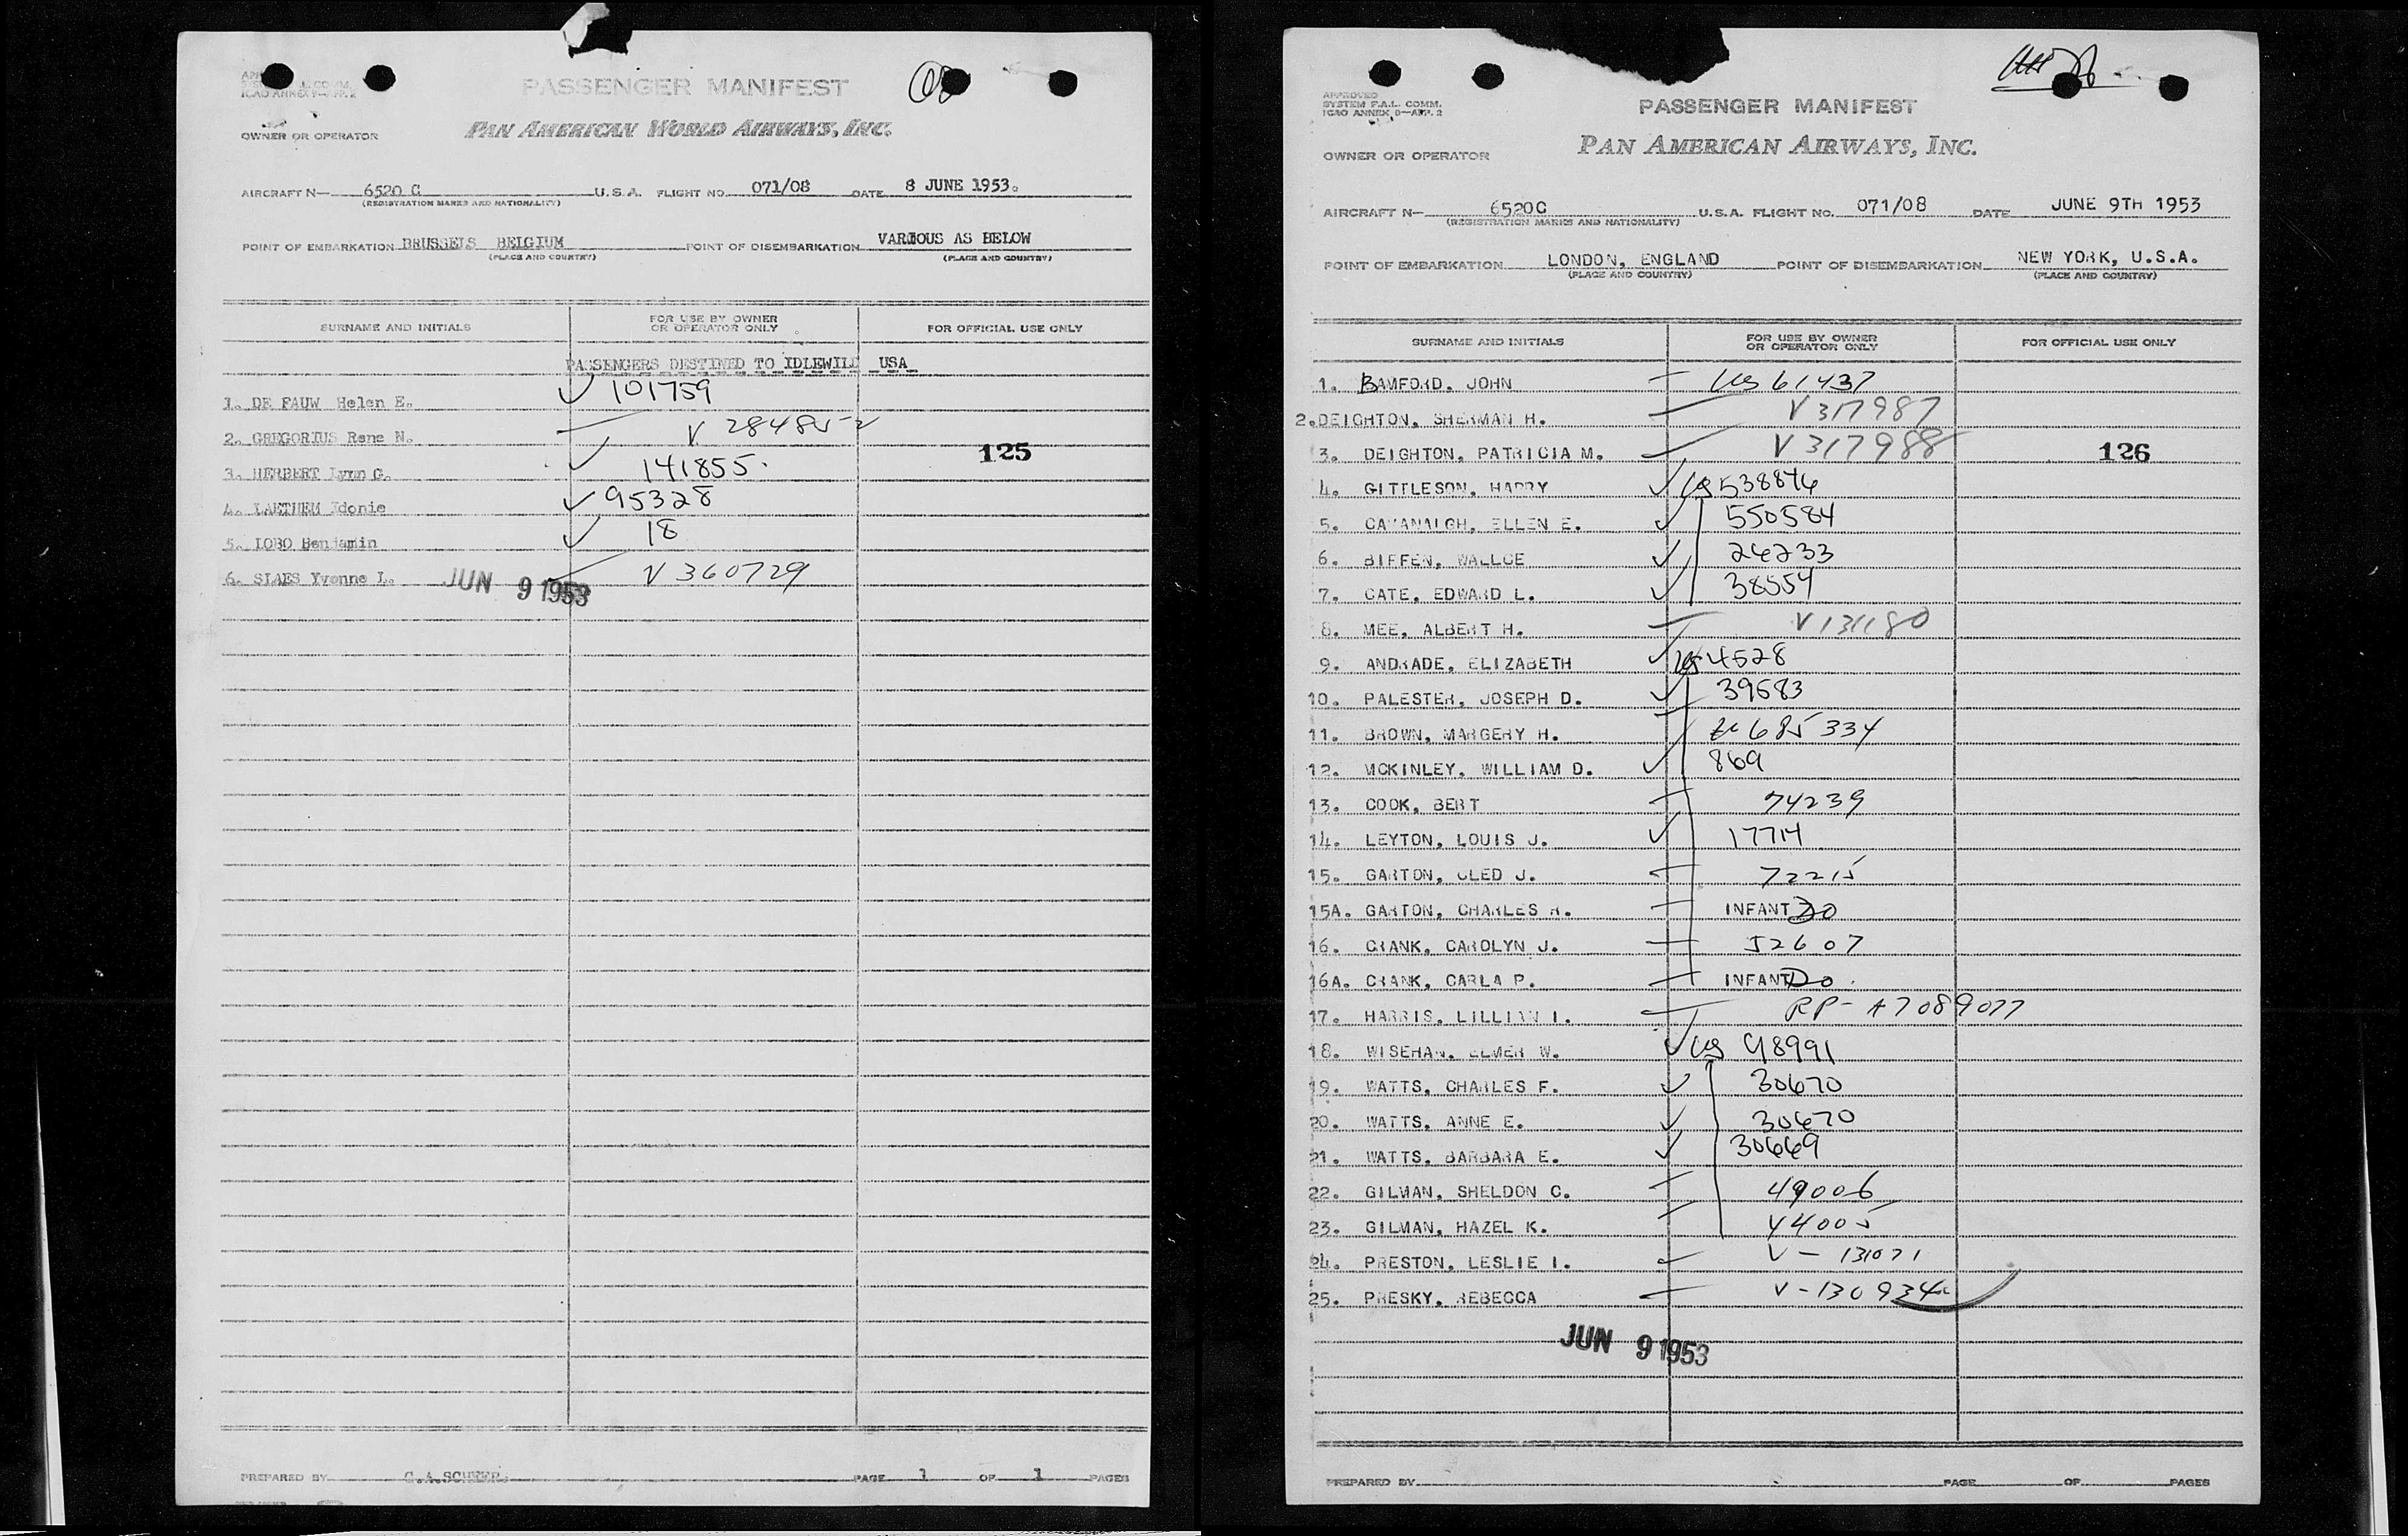 PASSENGER MANIFEST
ICAO ANNEX 9—APP. 2
OWNER OR OPERATOR
PAN AMERICAN WORLD AIRWAYS, INC.
AIRCRAFT N— 6520 C U.S.A. FLIGHT NO. 071/08 DATE 8 JUNE 1953.
(REGISTRATION MARKS AND NATIONALITY)
POINT OF EMBARKATION BRUSSELS BELGIUM POINT OF DISEMBARKATION VARIOUS AS BELOW
(PLACE AND COUNTRY) (PLACE AND COUNTRY)
SURNAME AND INITIALS FOR USE BY OWNER OR OPERATOR ONLY FOR OFFICIAL USE ONLY
PASSENGERS DESTINED TO IDLEWILD USA
1. DE FAUW Helen E. 101759
2. GREGORIUS Rene N. V 284852
125
3. HERBERT Lynn G. 141855.
4. LAETHEM Idonie 95328
5. LOBO Benjamin 18
6. SLAES Yvonne L. V 360729
JUN 9 1953
PREPARED BY PAGE 1 OF 1 PAGES
APPROVED
SYSTEM F.A.L. COMM.
ICAO ANNEX 9—APP. 2
PASSENGER MANIFEST
OWNER OR OPERATOR
PAN AMERICAN AIRWAYS, INC.
AIRCRAFT N— 6520C U.S.A. FLIGHT NO. 071/08 DATE JUNE 9TH 1953
(REGISTRATION MARKS AND NATIONALITY)
POINT OF EMBARKATION LONDON, ENGLAND POINT OF DISEMBARKATION NEW YORK, U.S.A.
(PLACE AND COUNTRY) (PLACE AND COUNTRY)
SURNAME AND INITIALS FOR USE BY OWNER OR OPERATOR ONLY FOR OFFICIAL USE ONLY
1. BAMFORD, JOHN US 61437
2. DEIGHTON, SHERMAN H. V 317987
3. DEIGHTON, PATRICIA M. V 317988
126
4. GITTLESON, HARRY US 538846
5. CAVANAUGH, ELLEN E. 550584
6. BIFFEN, WALLCE 24233
7. CATE, EDWARD L. 38554
8. MEE, ALBERT H. V 131180
9. ANDRADE, ELIZABETH US 4528
10. PALESTER, JOSEPH D. 39583
11. BROWN, MARGERY H. 685334
12. MCKINLEY, WILLIAM D. 869
13. COOK, BERT 74239
14. LEYTON, LOUIS J. 17714
15. GARTON, CLED J. 72215
15A. GARTON, CHARLES R. INFANT DO
16. CRANK, CAROLYN J. 52607
16A. CRANK, CARLA P. INFANT DO.
17. HARRIS, LILLIAN I. RP- A7089077
18. WISEHAN, ELMER W. US 98991
19. WATTS, CHARLES F. 30670
20. WATTS, ANNE E. 30670
21. WATTS, BARBARA E. 30669
22. GILMAN, SHELDON C. 49006
23. GILMAN, HAZEL K. 44005
24. PRESTON, LESLIE I. V — 131071
25. PRESKY, REBECCA V - 130934
JUN 9 1953
PREPARED BY PAGE OF PAGES